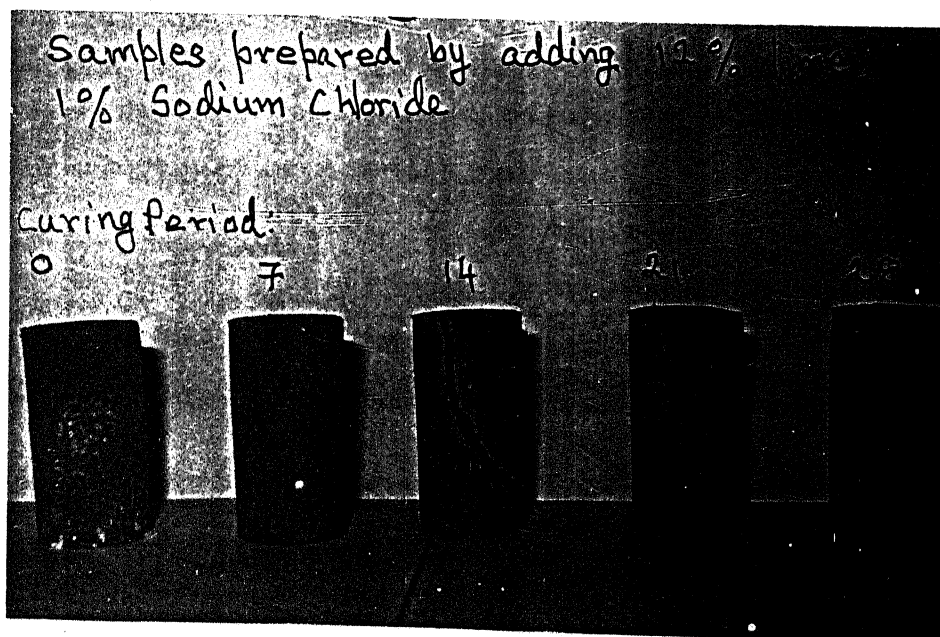 Samples prepared by adding 12% lime,
1% Sodium Chloride
Curing Period:
0 7 14 21 28